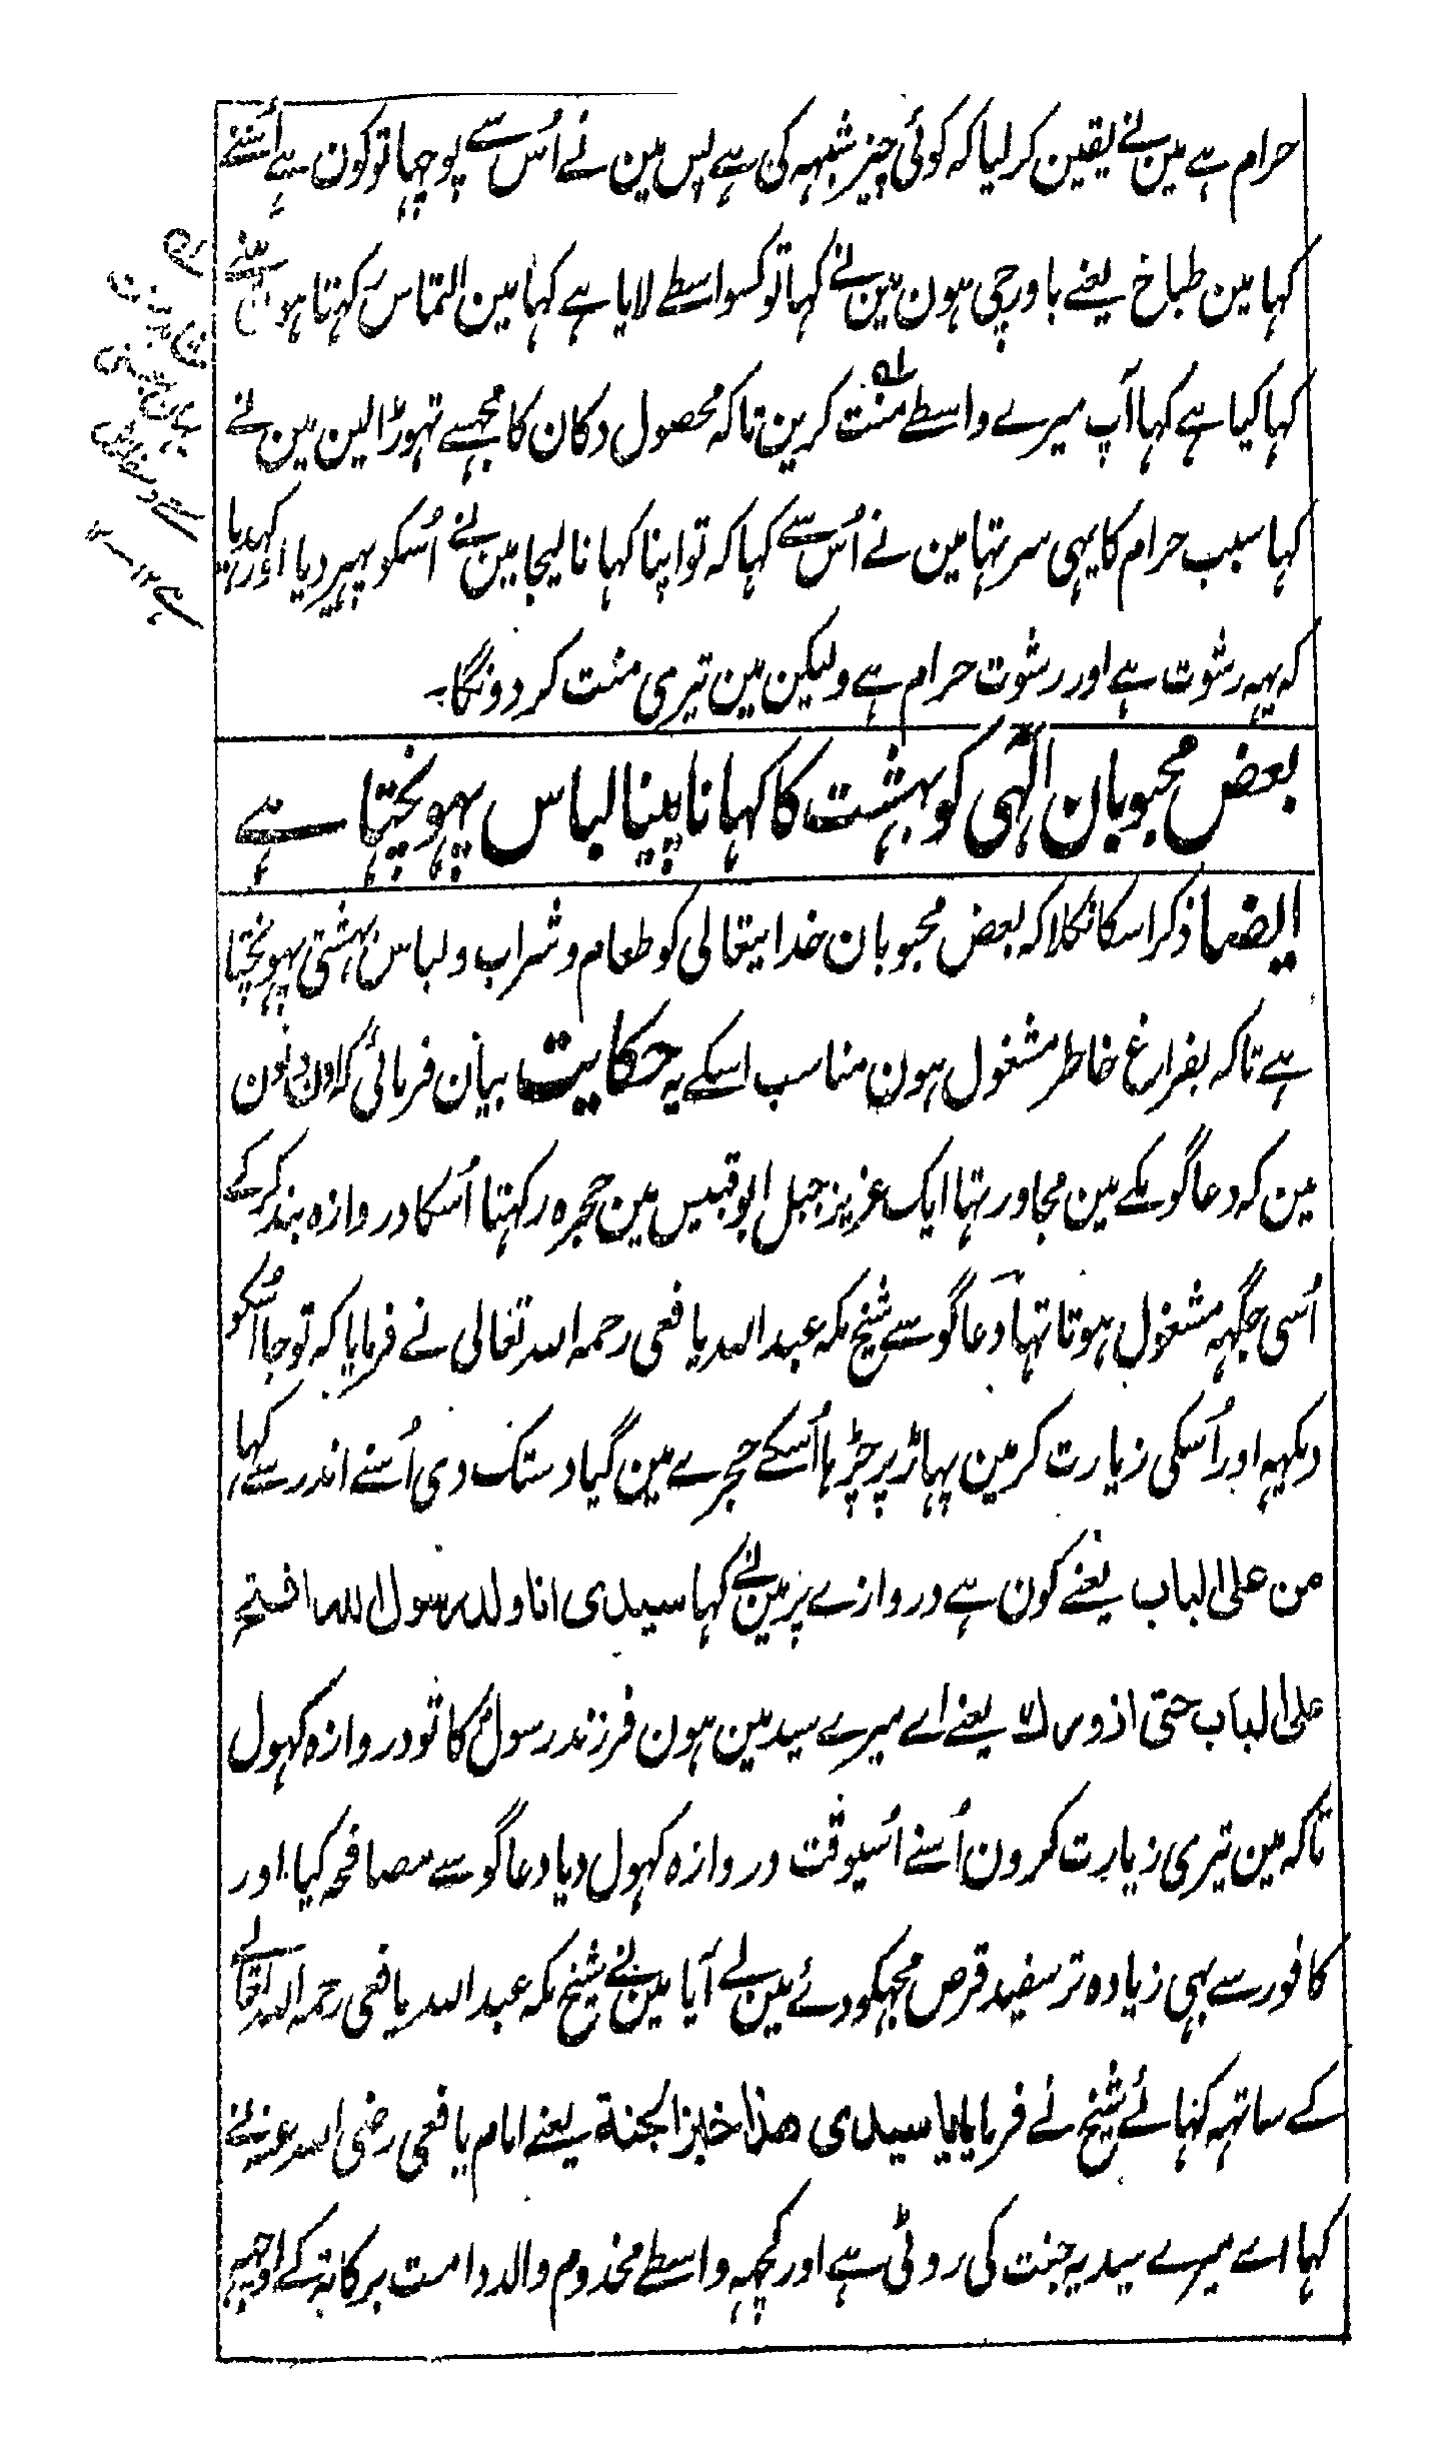 حرام ہے مین نے یقین کر لیا کہ کوئی چیز شبہہ کی ہے پس مین نے اُس سے پوچہا تو کون ہے اُسنے
کہا مین طباخ یعنے باورچی ہون مین نے کہا تو کسواسطے لایا ہے کہا مین التماس رکہتا ہون مینے
کہا کیا ہے کہا آپ میرے واسطے منت کرین تاکہ محصول دکان کا مجہسے تہوڑا لین مین نے
کہا سبب حرام کا یہی سر تہا مین نے اُس سے کہا کہ تو اپنا کہانا لیجا مین نے اُسکو پہیر دیا اور کہدیا
کہ یہہ رشوت ہے اور رشوت حرام ہے ولیکن مین تیری منت کر دونگا۔
بعض محبوبان الٰہی کو بہشت کا کہانا پینا لباس پہونچتا ہے
ایضا ذکر اسکا نکلا کہ بعض محبوبان خدایتعالی کو طعام و شراب و لباس بہشتی پہونچتا
ہے تاکہ بفراغ خاطر مشغول ہون مناسب اسکے یہ حکایت بیان فرمائی کہ اون دنون
مین کہ دعاگو مکے مین مجاور تہا ایک عزیز جبل ابو قبیس مین حجرہ رکہتا اُسکا دروازہ بند کر کے
اُسی جگہہ مشغول ہوتا تہا دعاگو سے شیخ مکہ عبد اللہ یافعی رحمہ اللہ تعالی نے فرمایا کہ تو جا اُسکو
دیکہہ اور اُسکی زیارت کر مین پہاڑ پر چڑہا اُسکے حجرے مین گیا دستک دی اُسنے اندر سے کہا
من علی الباب یعنے کون ہے دروازے پر مین نے کہا سیدی انا ولد رسول اللہ افتح
علی الباب حتی ازورک یعنے اے میرے سید مین ہون فرزند رسول کا تو دروازہ کہول
تاکہ مین تیری زیارت کرون اُسنے اُسیوقت دروازہ کہول دیا دعاگو سے مصافحہ کیا اور
کافور سے بہی زیادہ تر سفید قرص مجہکو دئے مین لے آیا مین نے شیخ مکہ عبد اللہ یافعی رحمہ اللہ تعالے
کے ساتہہ کہائے شیخ نے فرمایا یا سیدی ھذا خبز الجنة یعنے امام یافعی رضی اللہ عنہ نے
کہا اے میرے سید یہ جنت کی روٹی ہے اور کچہہ واسطے مخدوم والد دامت برکاتہ کے